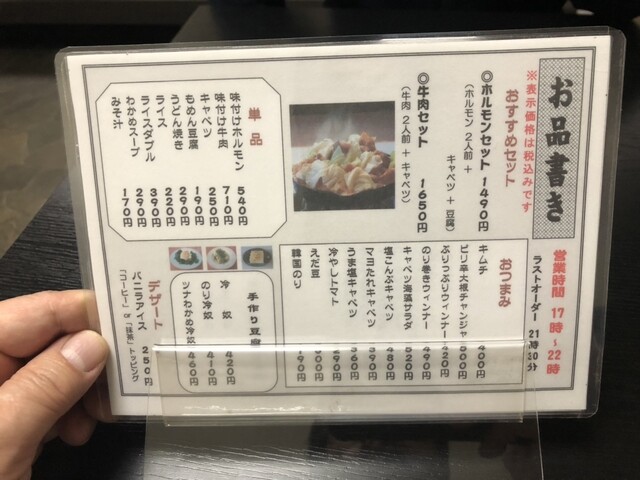 お品書き
※表示価格は税込みです
営業時間 17時~22時
ラストオーダー 21時30分
おすすめセット
◎ホルモンセット 1490円
(ホルモン 2人前 +
キャベツ + 豆腐)
◎牛肉セット 1650円
(牛肉 2人前 + キャベツ)
単品
味付けホルモン 540円
味付け牛肉 710円
キャベツ 250円
もめん豆腐 190円
うどん焼き 290円
ライス 220円
ライスダブル 390円
わかめスープ 290円
みそ汁 170円
おつまみ
キムチ 400円
ピリ辛大根チャンジャ 500円
ぷりっぷりウィンナー 420円
のり巻きウィンナー 490円
キャベツ海藻サラダ 520円
塩こんぶキャベツ 480円
マヨたれキャベツ 590円
うま塩キャベツ 560円
冷やしトマト 390円
えだ豆 300円
韓国のり 190円
手作り豆腐
冷奴 420円
のり冷奴 410円
ツナわかめ冷奴 460円
デザート
バニラアイス 250円
「コーヒー」or「抹茶」トッピング